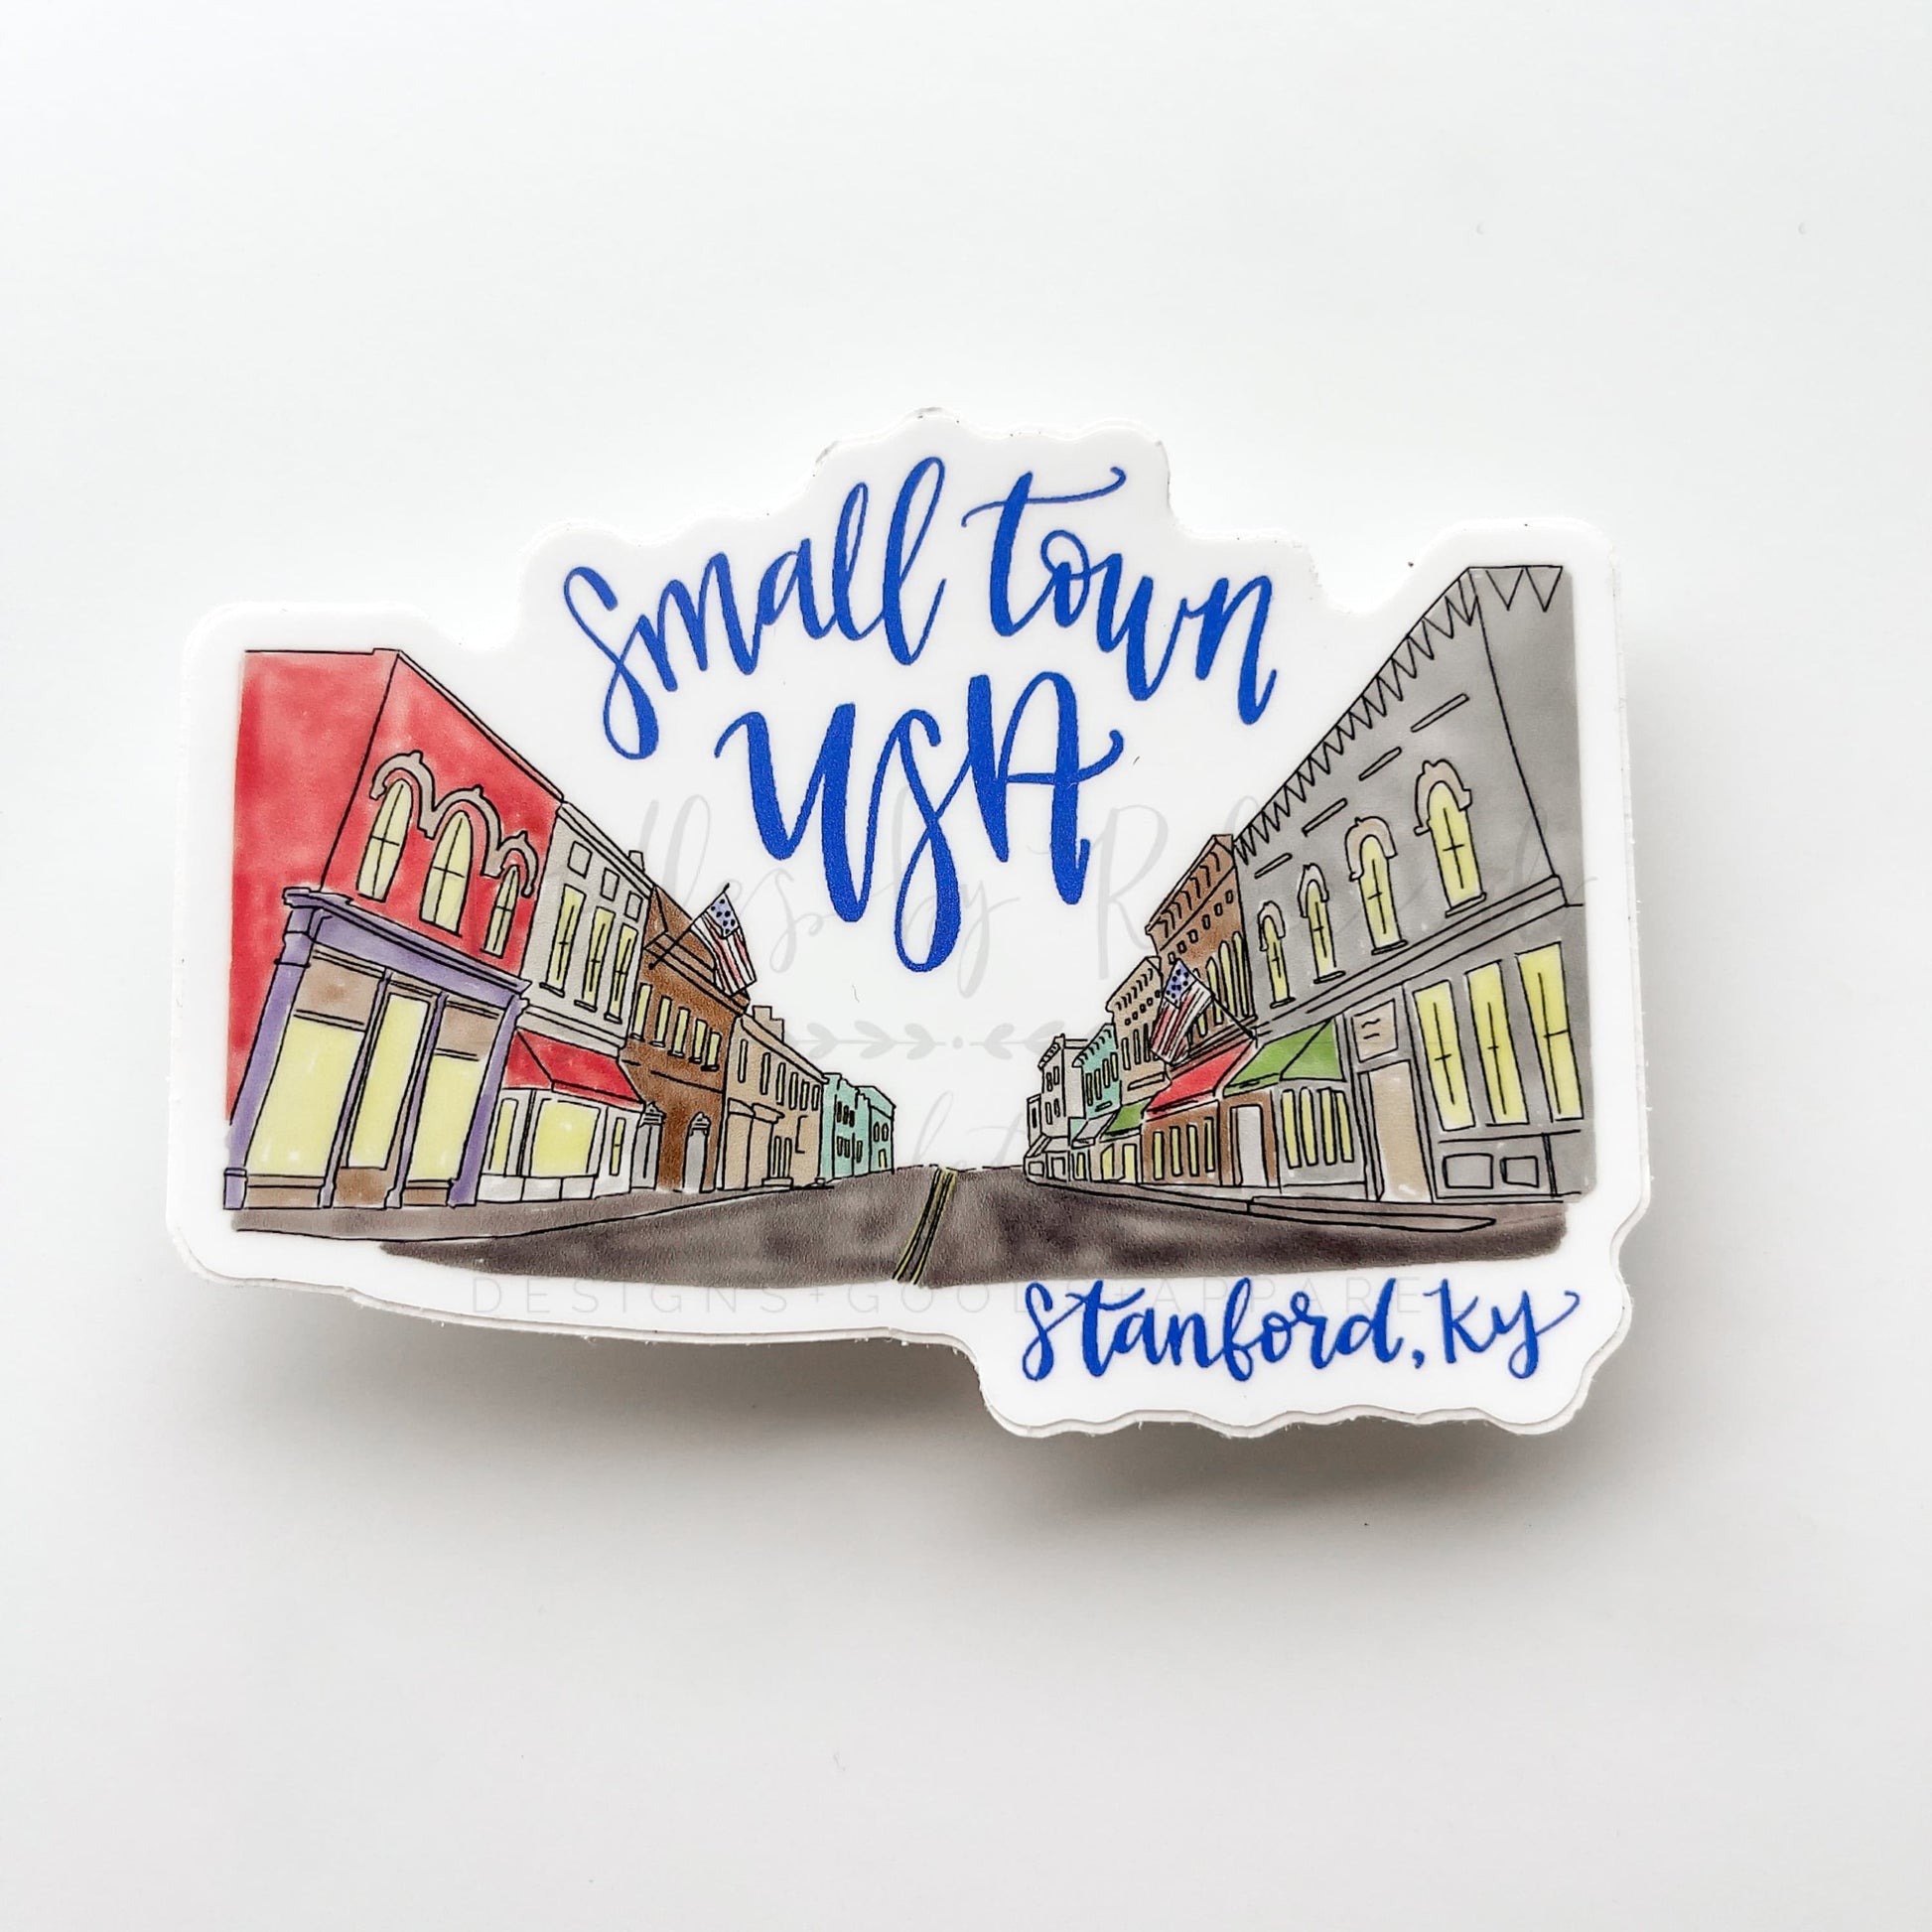 small town
USA
by
DESIGNS + GOODS + APPAREL
Stanford, KY